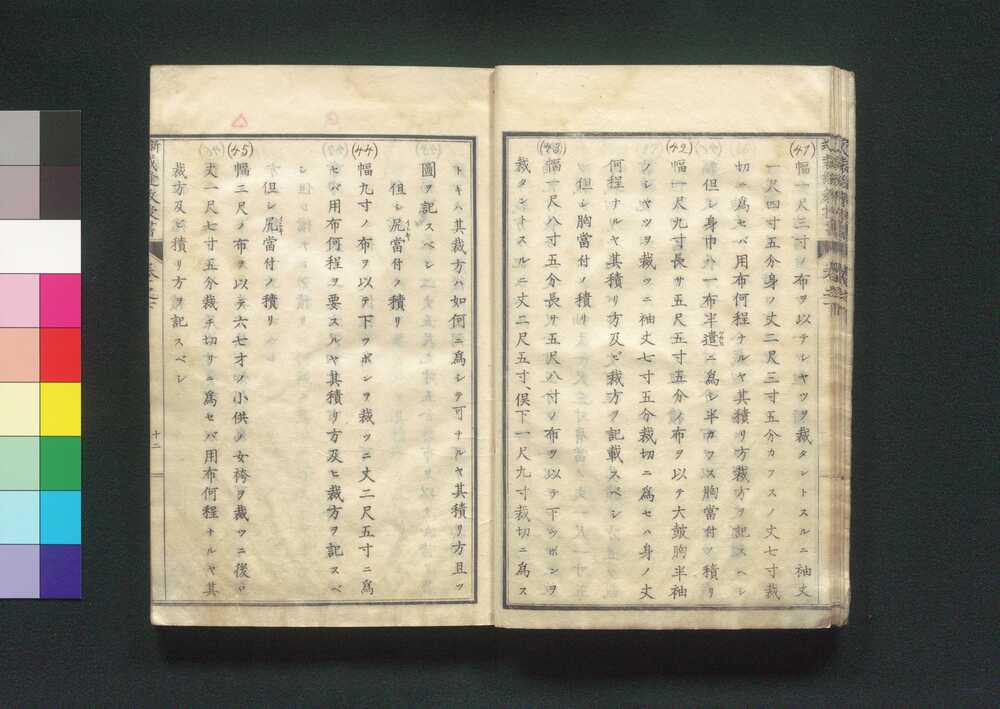 (41)
幅一尺三寸ノ布ヲ以テシヤツヲ裁タントスルニ袖丈
一尺四寸五分身ノ丈二尺三寸五分カフスノ丈七寸裁
切ニ為セバ用布何程ナルヤ其積リ方裁方ヲ記スヘシ
但シ身巾ハ一布半遣ニ為シ半カフス胸當付ノ積リ
(42)
幅一尺九寸長サ五尺五寸五分ノ布ヲ以テ大皷胸半袖
シヤツヲ裁ツニ袖丈七寸五分裁切ニ為セハ身ノ丈
何程ナルヤ其積リ方及ヒ裁方ヲ記載スベシ
但シ胸當付ノ積リ
(43)
幅一尺八寸五分長サ五尺八寸ノ布ヲ以テ下ヅボンヲ
裁タントスルニ丈二尺五寸、俣下一尺九寸裁切ニ為ス
トキハ其裁方ハ如何ニ為シテ可ナルヤ其積リ方且ツ
圖ヲ記スベシ
但シ尻當付ノ積リ
(44)
幅九寸ノ布ヲ以テ下ヅボンヲ裁ツニ丈二尺五寸ニ為
セバ用布何程ヲ要スルヤ其積リ方及ヒ裁方ヲ記スベ
シ
但シ尻當付ノ積リ
(45)
幅二尺ノ布ヲ以テ六七才ノ小供ノ女袴ヲ裁ツニ後ロ
丈一尺七寸五分裁チ切リニ為セバ用布何程ナルヤ其
裁方及ヒ積リ方ヲ記スベシ
十二